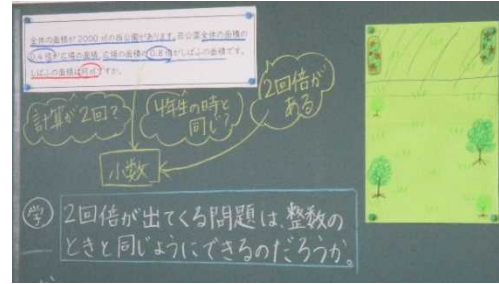 全体の面積が2000㎡の西公園があります。西公園全体の面積の
0.4倍が広場の面積、広場の面積の0.8倍がしばふの面積です。
しばふの面積は何㎡ですか。
計算が2回?
4年生の時と
同じ?
2回倍が
ある
小数
学 2回倍が出てくる問題は、整数の
ときと同じようにできるのだろうか。